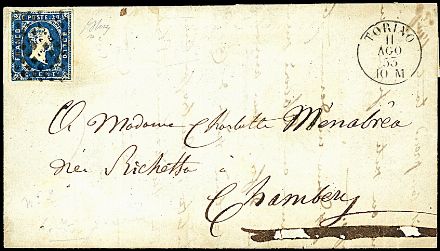 C. POSTE 20
FRANCO
BOLLO
TORINO
11
AGO
53
10 M
A Madame Charlotte Menabréa
née Richetta à
Chambery